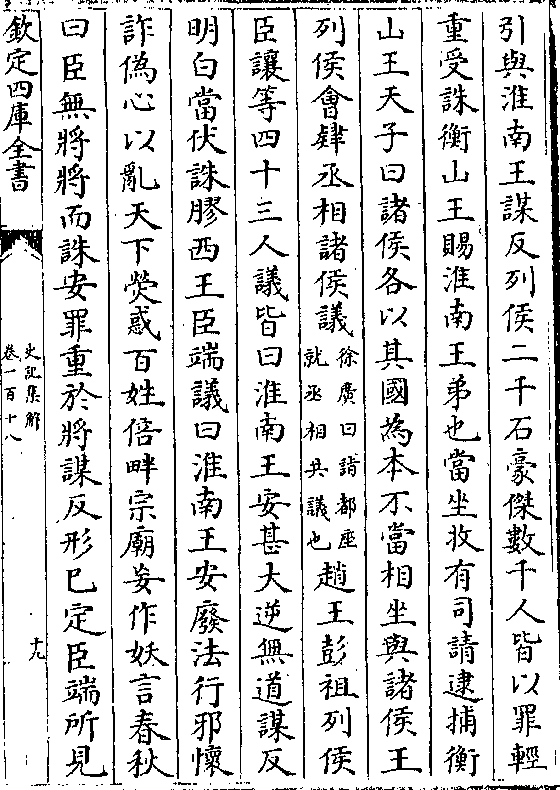 引與淮南王謀反列侯二千石豪傑數千人皆以罪輕
重受誅衡山王賜淮南王弟也當坐收有司請逮捕衡
山王天子曰諸侯各以其國為本不當相坐與諸侯王
列侯會肄丞相諸侯議徐廣曰詣都座就丞相共議也趙王彭祖列侯
臣讓等四十三人議皆曰淮南王安甚大逆無道謀反
明白當伏誅膠西王臣端議曰淮南王安廢法行邪懷
詐偽心以亂天下熒惑百姓倍畔宗廟妄作妖言春秋
曰臣無將將而誅安罪重於將謀反形已定臣端所見
欽定四庫全書
史記集解
卷一百十八
十九